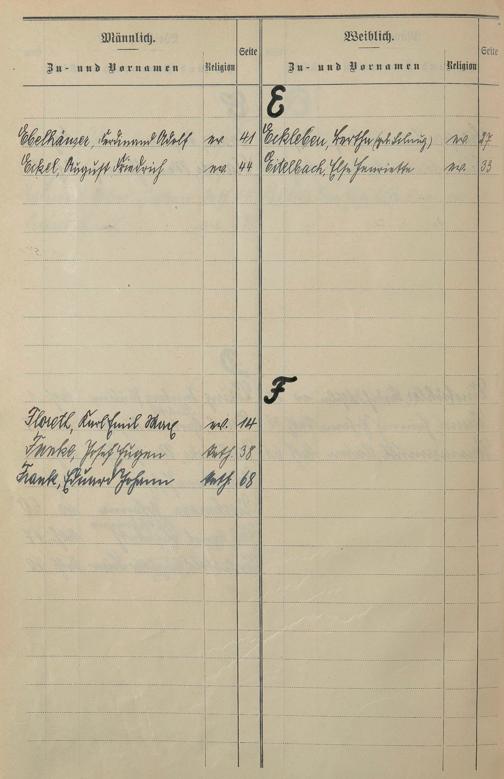 Männlich.
Zu- und Vornamen Religion Seite
Weiblich.
Zu- und Vornamen Religion Seite
E
Ebelhäuser, Ferdinand Adolf ev. 41
Eckel, August Friedrich ev. 44
Eckleben, Bertha (geb. ev. 27
Eitelbach, Else Henriette ev. 33
F
Floreth, Karl Emil Max ev. 14
Funke, Josef Eugen kath. 38
Frank, Eduard Johann kath. 68